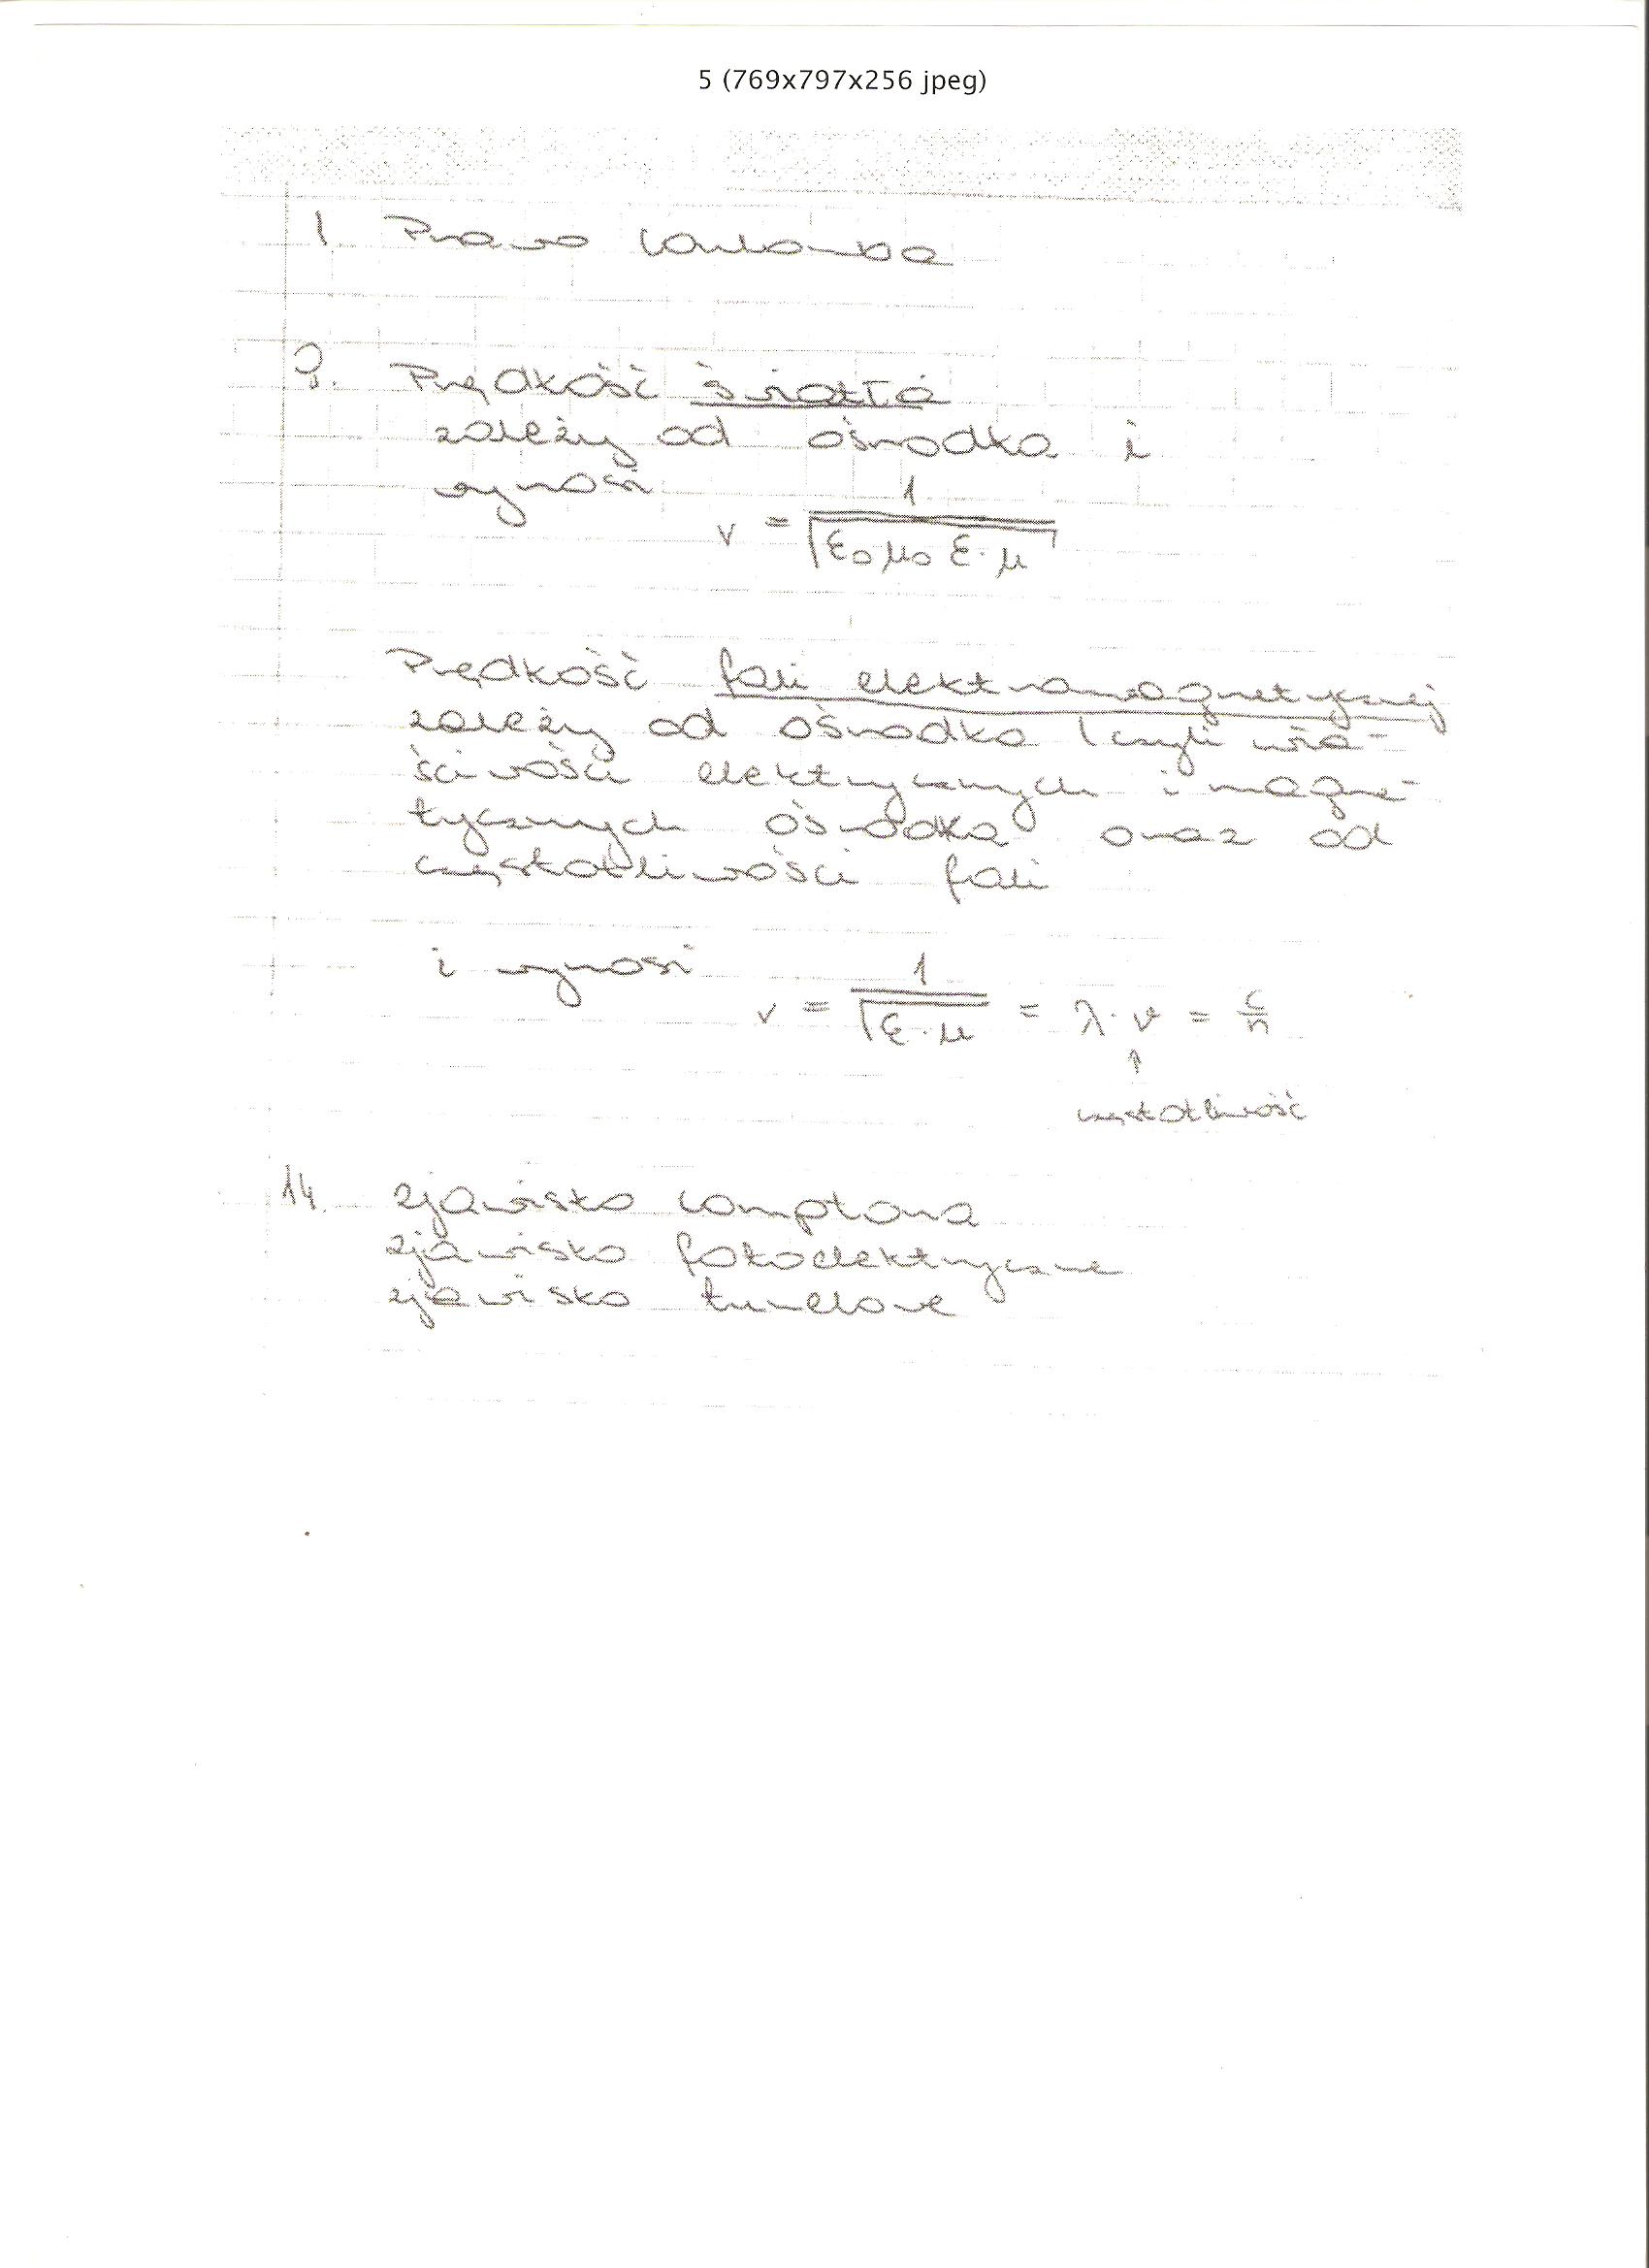 5 (769x797x256 jpeg)
1. Prawo Coulomba
9. Prędkość światła
zależy od ośrodka i
wynosi
v = 1/√(ε₀μ₀ε·μ)
Prędkość fali elektromagnetycznej
zależy od ośrodka (czyli wła-
ściwości elektrycznych i magne-
tycznych ośrodka oraz od
częstotliwości fali
i wynosi
v = 1/√(ε·μ) = λ·ν = c/n
↑
częstotliwość
14. zjawisko comptona
zjawisko fotoelektryczne
zjawisko tunelowe